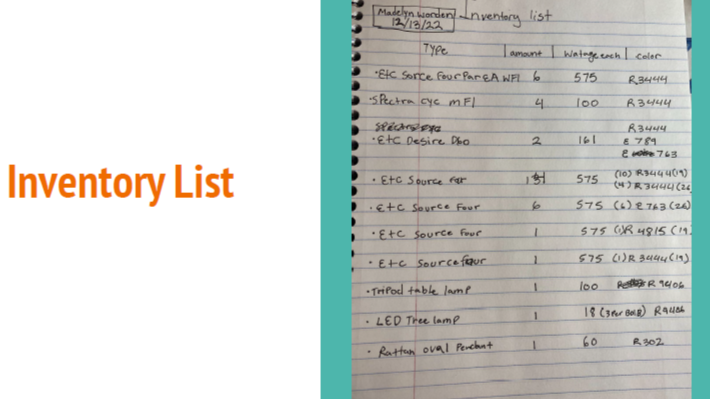 Inventory List
Madelyn Worden
12/13/22
Inventory list
Type | amount | Watage each | color
· Etc Sorce Four Par EA WFl 6 575 R3444
· Spectra cyc mFl 4 100 R3444
R3444
· Etc Desire D60 2 161 E 789
E 763
· Etc Source 575 (10) R3444 (19)
R3444 (26
· Etc Source Four 6 575 (6) E 763 (26)
· Etc Source Four 1 575 (1) R 4815 (19
· Etc Source Four 1 575 (1) R 3444 (19)
· Tripod table lamp 1 100 R 9406
· LED Tree lamp 1 18 (3 Per Bulb) R9406
· Rattan oval Pendant 1 60 R302